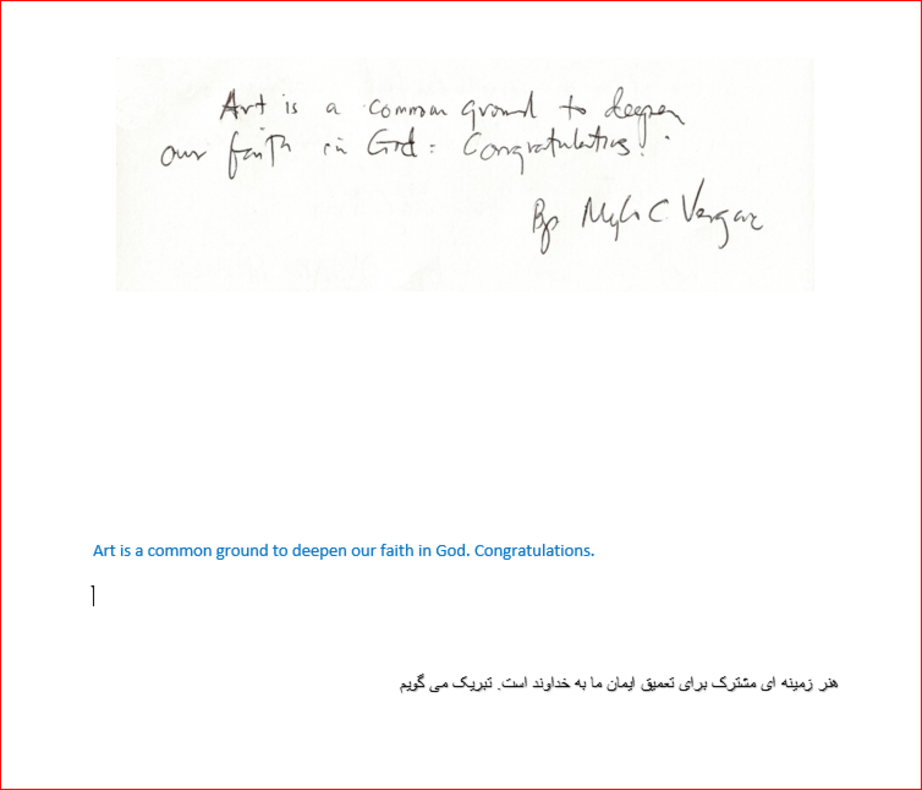 Art is a common ground to deepen
our faith in God. Congratulations!
Bp Mylo C. Vergara
Art is a common ground to deepen our faith in God. Congratulations.
هنر زمینه ای مشترک برای تعمیق ایمان ما به خداوند است. تبریک می گویم